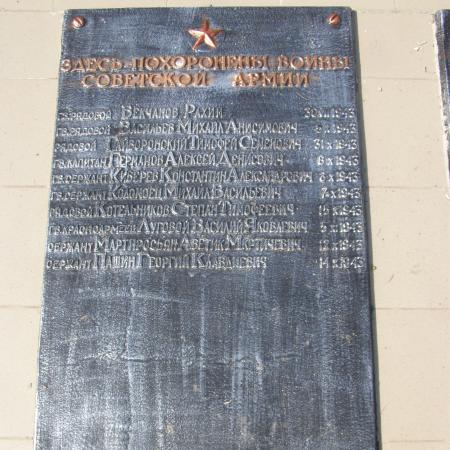 ЗДЕСЬ ПОХОРОНЕНЫ ВОИНЫ
СОВЕТСКОЙ АРМИИ
ГВ.РЯДОВОЙ ВЕКЧАНОВ РАХИМ 30 XI 1943
ГВ.РЯДОВОЙ ВАСИЛЬЕВ МИХАИЛ АНИСИМОВИЧ 6 X 1943
РЯДОВОЙ ГАЙВОРОНСКИЙ ТИМОФЕЙ СЕМЕНОВИЧ 31 X 1943
ГВ.КАПИТАН ГЕРМАНОВ АЛЕКСЕЙ ДЕНИСОВИЧ 8 X 1943
ГВ.СЕРЖАНТ КИБЕРЕВ КОНСТАНТИН АЛЕКСАНДРОВИЧ 8 X 1943
ГВ.СЕРЖАНТ КОЛОМОЕЦ МИХАИЛ ВАСИЛЬЕВИЧ 7 X 1943
РЯДОВОЙ КОТЕЛЬНИКОВ СТЕПАН ТИМОФЕЕВИЧ 15 X 1943
ГВ.КРАСНОАРМЕЕЦ ЛУГОВОЙ ВАСИЛИЙ ЯКОВЛЕВИЧ 5 X 1943
СЕРЖАНТ МАРТИРОСЬЯН АВЕТИК МКРТИЧЕВИЧ 12 X 1943
СЕРЖАНТ ПАШИН ГЕОРГИЙ КЛАВДИЕВИЧ 14 X 1943